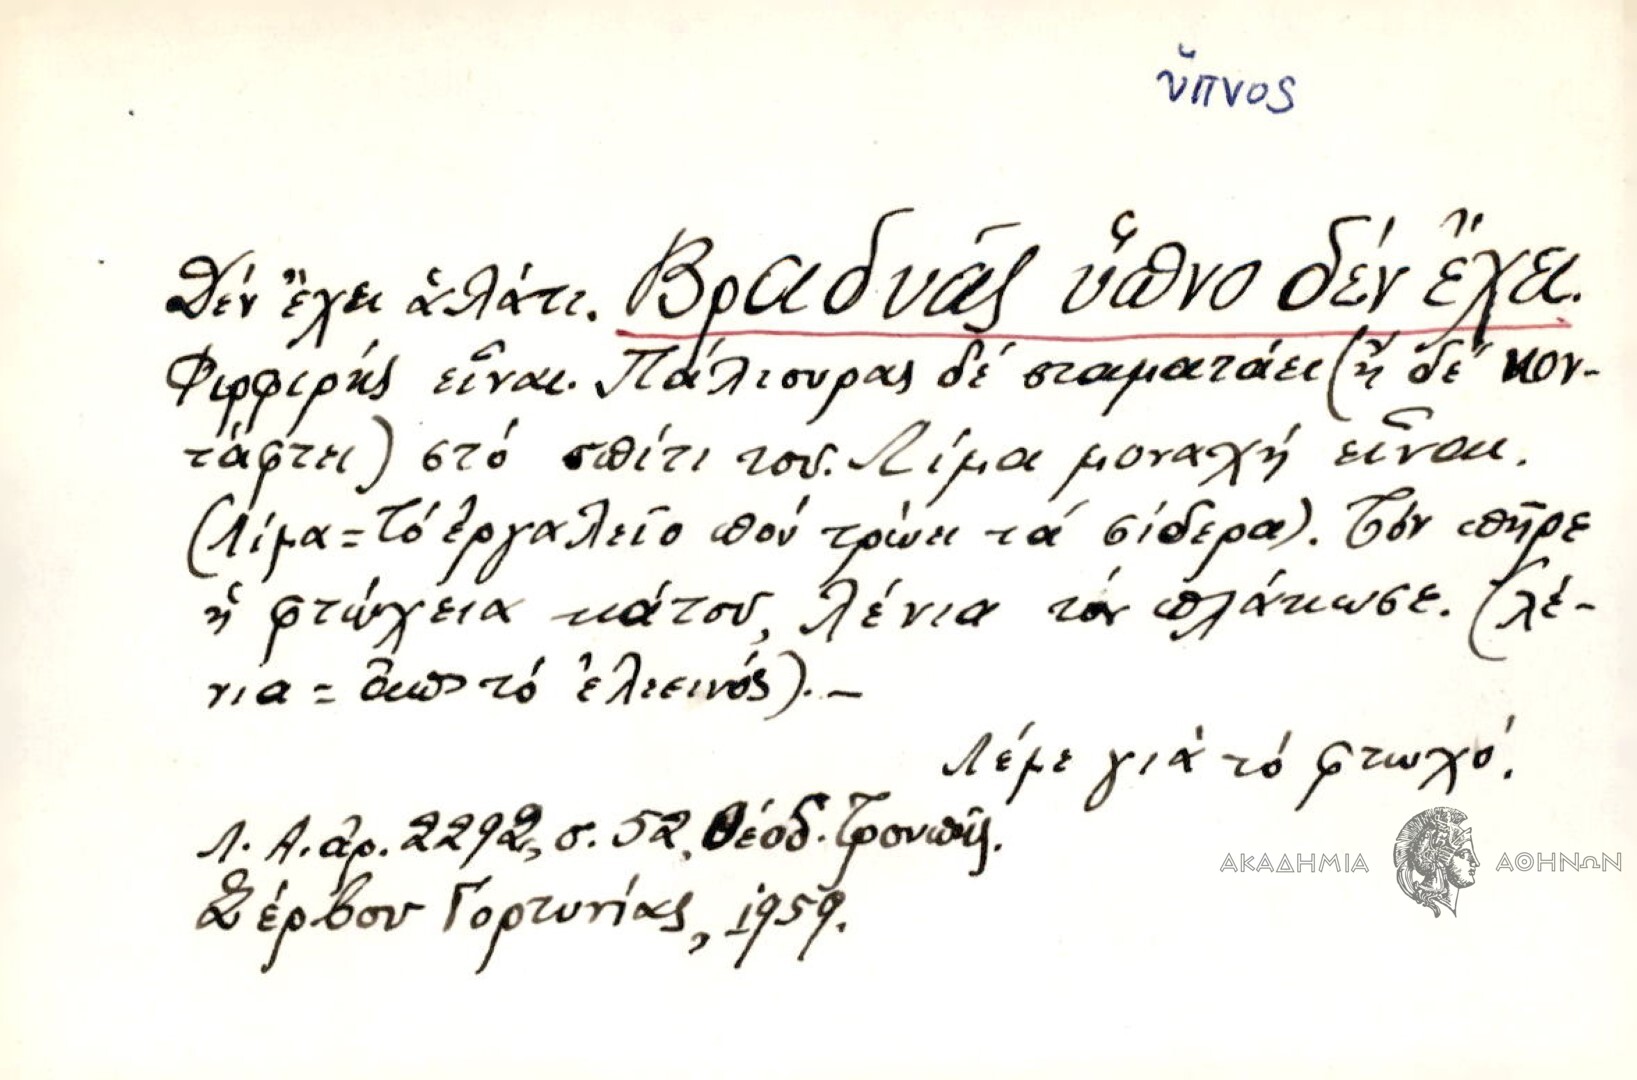 ὕπνος
Δέν ἔχει ἁλάτι. Βραδυᾶς ὕπνο δέν ἔχει.
Φιρφιρής εἶναι. Πάλιουρας δέ σταματάει (ἤ δέ κον-
τάφτει) στό σπίτι του. Λίμα μοναχή εἶναι.
(Λίμα = τό ἐργαλεῖο πού τρώει τά σίδερα). Τόν πῆρε
ἡ φτώχεια κάτου, λένια τόν πλάκωσε. (λέ-
νια = ἀπό τό ἐλεεινός). —
Λέμε γιά τό φτωχό.
Λ. Α. ἀρ. 2292, σ. 52, Θεόδ. Τρουπῆς.
Σέρβου Γορτυνίας, 1959.
ΑΚΑΔΗΜΙΑ ΑΘΗΝΩΝ